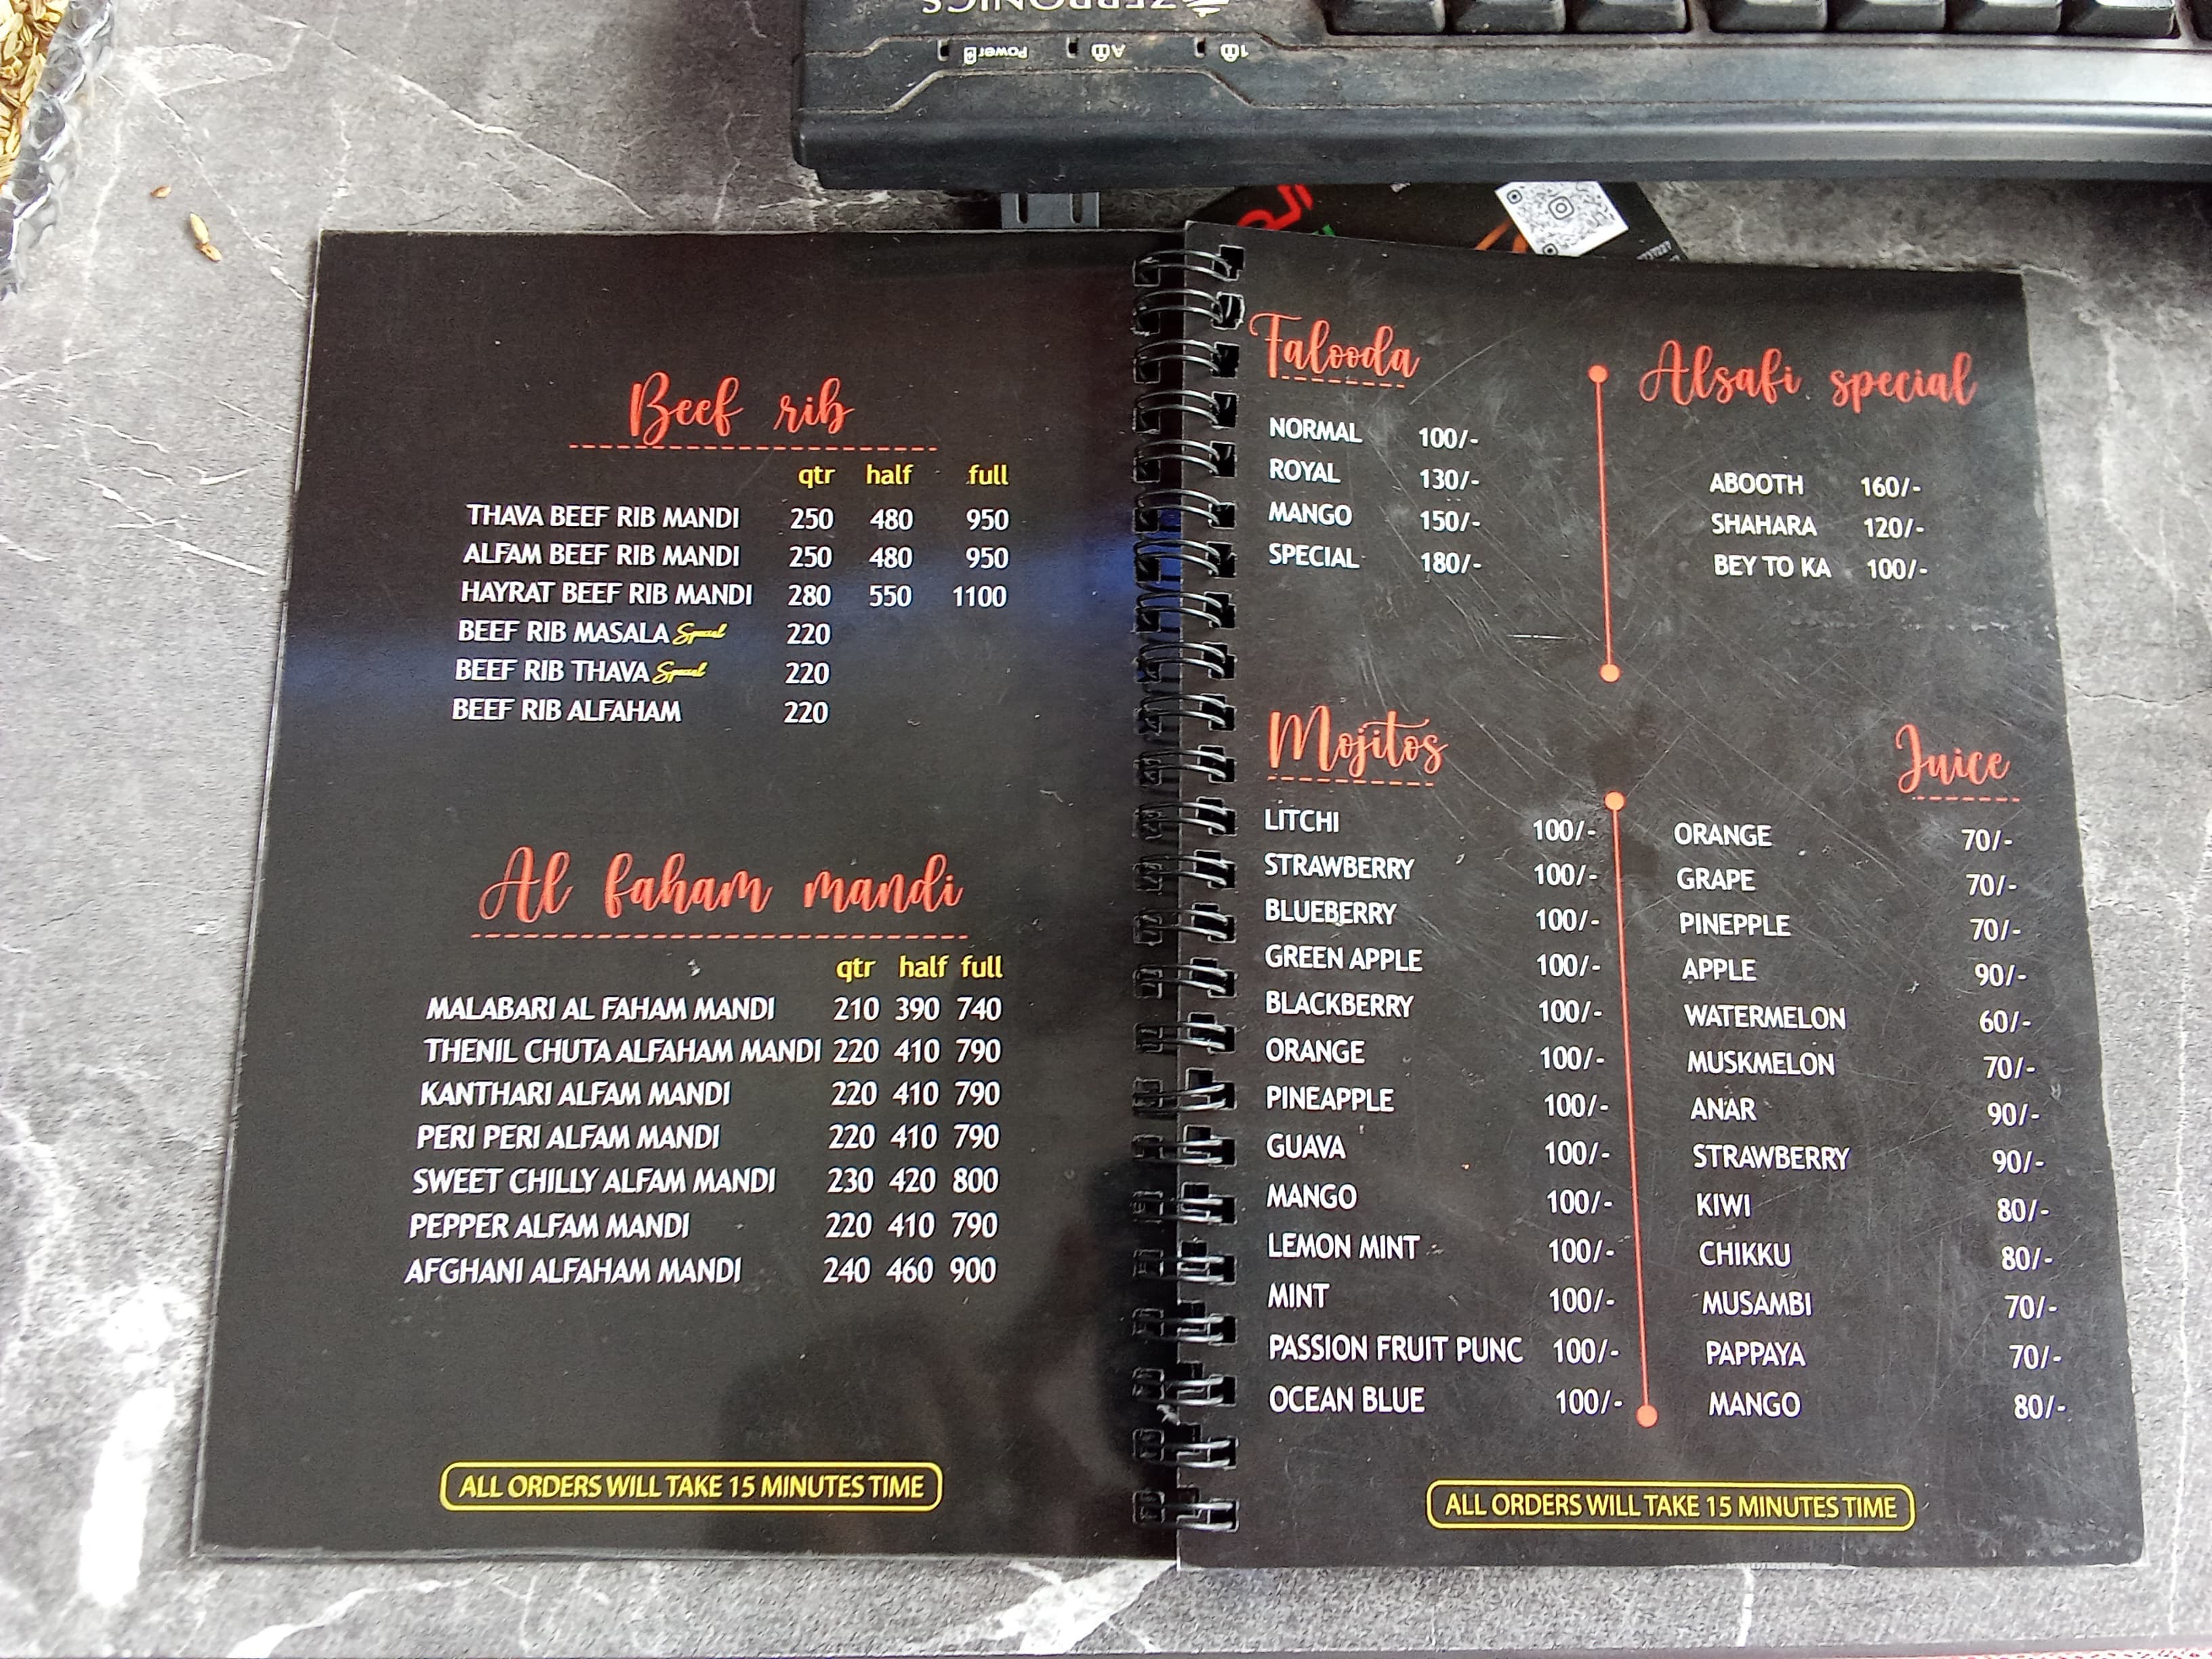 ZEBRONICS
Power A 1
Beef rib
qtr half full
THAVA BEEF RIB MANDI 250 480 950
ALFAM BEEF RIB MANDI 250 480 950
HAYRAT BEEF RIB MANDI 280 550 1100
BEEF RIB MASALA Special 220
BEEF RIB THAVA Special 220
BEEF RIB ALFAHAM 220
Al faham mandi
qtr half full
MALABARI AL FAHAM MANDI 210 390 740
THENIL CHUTA ALFAHAM MANDI 220 410 790
KANTHARI ALFAM MANDI 220 410 790
PERI PERI ALFAM MANDI 220 410 790
SWEET CHILLY ALFAM MANDI 230 420 800
PEPPER ALFAM MANDI 220 410 790
AFGHANI ALFAHAM MANDI 240 460 900
ALL ORDERS WILL TAKE 15 MINUTES TIME
Falooda
NORMAL 100/-
ROYAL 130/-
MANGO 150/-
SPECIAL 180/-
Alsafi special
ABOOTH 160/-
SHAHARA 120/-
BEY TO KA 100/-
Mojitos
LITCHI 100/-
STRAWBERRY 100/-
BLUEBERRY 100/-
GREEN APPLE 100/-
BLACKBERRY 100/-
ORANGE 100/-
PINEAPPLE 100/-
GUAVA 100/-
MANGO 100/-
LEMON MINT 100/-
MINT 100/-
PASSION FRUIT PUNC 100/-
OCEAN BLUE 100/-
Juice
ORANGE 70/-
GRAPE 70/-
PINEPPLE 70/-
APPLE 90/-
WATERMELON 60/-
MUSKMELON 70/-
ANAR 90/-
STRAWBERRY 90/-
KIWI 80/-
CHIKKU 80/-
MUSAMBI 70/-
PAPPAYA 70/-
MANGO 80/-
ALL ORDERS WILL TAKE 15 MINUTES TIME